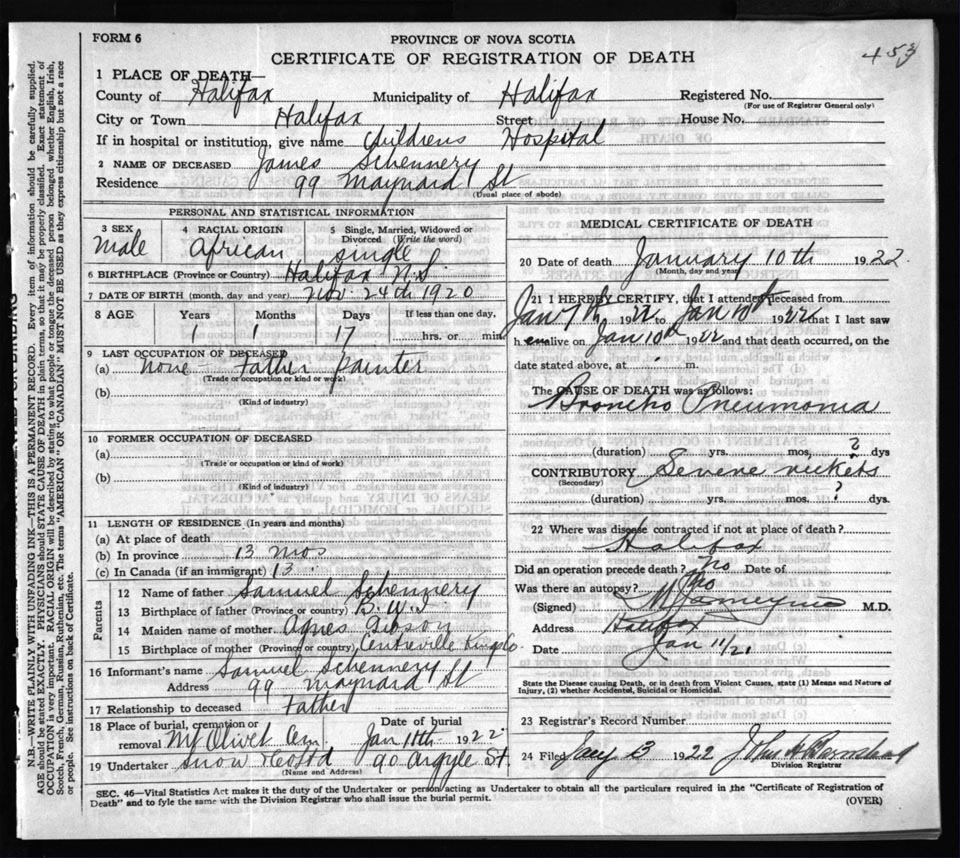 FORM 6
PROVINCE OF NOVA SCOTIA
CERTIFICATE OF REGISTRATION OF DEATH
453
1 PLACE OF DEATH—
County of Halifax Municipality of Halifax Registered No.
(For use of Registrar General only)
City or Town Halifax Street House No.
If in hospital or institution, give name Childrens Hospital
2 NAME OF DECEASED James Schennery
Residence 99 Maynard St
(Usual place of abode)
PERSONAL AND STATISTICAL INFORMATION
3 SEX 4 RACIAL ORIGIN 5 Single, Married, Widowed or
Divorced (Write the word)
Male African single
6 BIRTHPLACE (Province or Country) Halifax N.S.
7 DATE OF BIRTH (month, day and year) Nov. 24th 1920
8 AGE Years Months Days If less than one day,
1 1 17 hrs. or min.
9 LAST OCCUPATION OF DECEASED
(a) None - Father Painter
(Trade or occupation or kind of work)
(b)
(Kind of industry)
10 FORMER OCCUPATION OF DECEASED
(a)
(Trade or occupation or kind of work)
(b)
(Kind of industry)
11 LENGTH OF RESIDENCE (In years and months)
(a) At place of death
(b) In province 13 mos
(c) In Canada (if an immigrant) 13
Parents
12 Name of father Samuel Schennery
13 Birthplace of father (Province or country) B.W.I.
14 Maiden name of mother Agnes Gibson
15 Birthplace of mother (Province or country) Centreville Kings Co.
16 Informant's name Samuel Schennery
Address 99 Maynard St
17 Relationship to deceased Father
18 Place of burial, cremation or removal Mt Olivet Cem. Date of burial Jan 11th 1922
19 Undertaker Snow 90 Argyle St.
(Name and Address)
MEDICAL CERTIFICATE OF DEATH
20 Date of death January 10th 1922.
(Month, day and year)
21 I HEREBY CERTIFY, that I attended deceased from
Jan 7th 1922 to Jan 10th 1922 that I last saw
h em alive on Jan 10th 1922 and that death occurred, on the
date stated above, at m.
The CAUSE OF DEATH was as follows:
Broncho Pneumonia
(duration) yrs. mos. ? dys
CONTRIBUTORY Severe rickets
(Secondary)
(duration) yrs. mos. ? dys.
22 Where was disease contracted if not at place of death?
Halifax
Did an operation precede death? No Date of
Was there an autopsy? No
(Signed) M.D.
Address Halifax
Date Jan 11/21
State the Disease causing Death, or in death from Violent Causes, state (1) Means and Nature of
Injury, (2) whether Accidental, Suicidal or Homicidal.
23 Registrar's Record Number
24 Filed Jany 13 1922 John A
Division Registrar
SEC. 46—Vital Statistics Act makes it the duty of the Undertaker or person acting as Undertaker to obtain all the particulars required in the "Certificate of Registration of
Death" and to fyle the same with the Division Registrar who shall issue the burial permit.
(OVER)
N.B.—WRITE PLAINLY WITH UNFADING INK—THIS IS A PERMANENT RECORD. Every item of information should be carefully supplied.
AGE should be stated EXACTLY. PHYSICIANS should STATE CAUSE OF DEATH in plain terms, so that it may be properly classified. Exact statement of
OCCUPATION is very important. RACIAL ORIGIN will be described by stating to what people or tongue the deceased person belonged whether English, Irish,
Scotch, French, German, Russian, Ruthenian, etc. The terms "AMERICAN" OR "CANADIAN" MUST NOT BE USED as they express citizenship but not a race
or people. See instructions on back of Certificate.